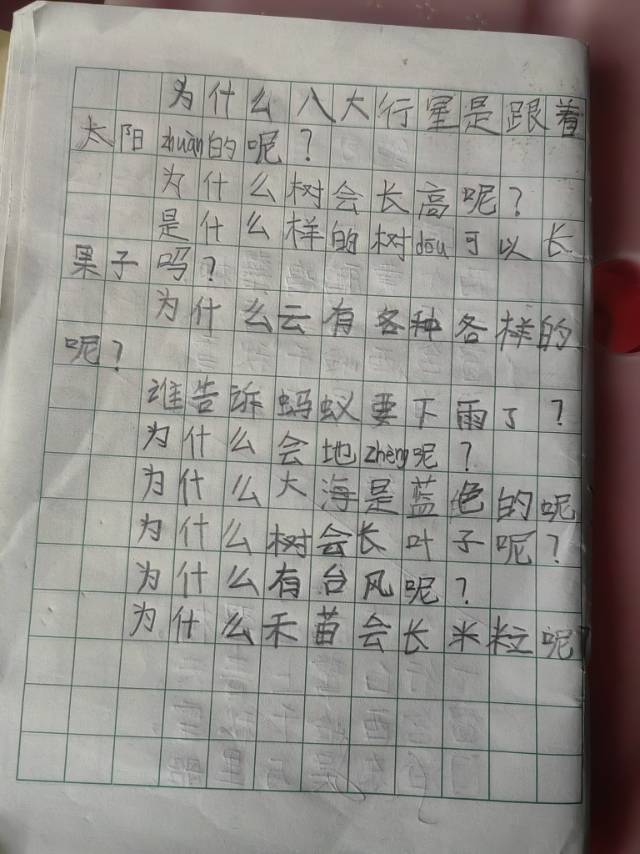 为什么八大行星是跟着
太阳zhuàn的呢？
为什么树会长高呢？
是什么样的树dōu可以长
果子吗？
为什么云有各种各样的
呢？
谁告诉蚂蚁要下雨了？
为什么会地zhèng呢？
为什么大海是蓝色的呢
为什么树会长叶子呢？
为什么有台风呢？
为什么禾苗会长米粒呢？